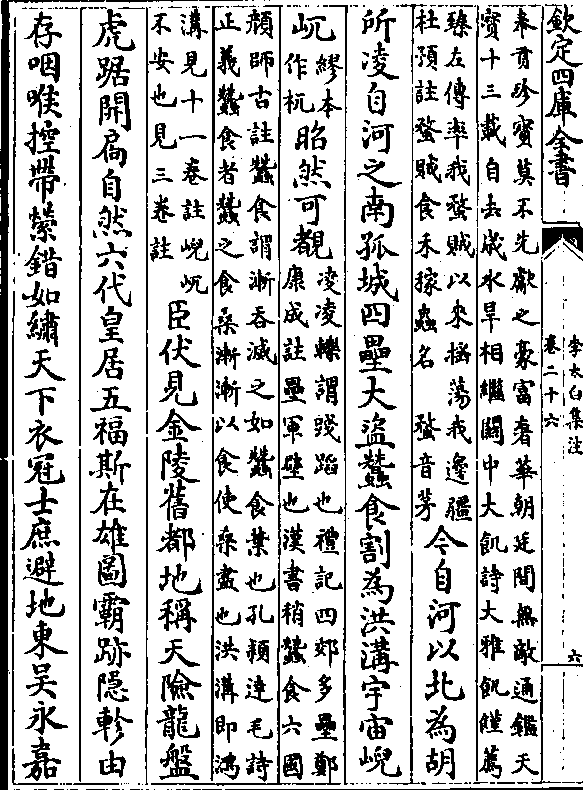 欽定四庫全書
李太白集注
卷二十六
六
奉貢珍寳莫不先獻之豪富奢華朝廷間無敵通鑑天
寳十三載自去歲水旱相繼闗中大飢詩大雅飢饉薦
臻左傳率我蝥賊以來揺蕩我邊疆
杜預註蝥賊食禾稼蟲名 蝥音茅
今自河以北為胡
所凌自河之南孤城四壘大盜蠶食割為洪溝宇宙
屼
繆本
作杌
昭然可覩
凌凌轢謂踐蹈也禮記四郊多壘鄭
康成註壘軍壁也漢書稍蠶食六國
顔師古註蠶食謂漸吞滅之如蠶食葉也孔穎達毛詩
正義蠶食者蠶之食桑漸漸以食使桑盡也洪溝即鴻
溝見十一卷註屼
不安也見三卷註
臣伏見金陵舊都地稱天險龍盤
虎踞開扃自然六代皇居五福斯在雄圖霸跡隱軫由
存咽喉控帶縈錯如繡天下衣冠士庶避地東吳永嘉